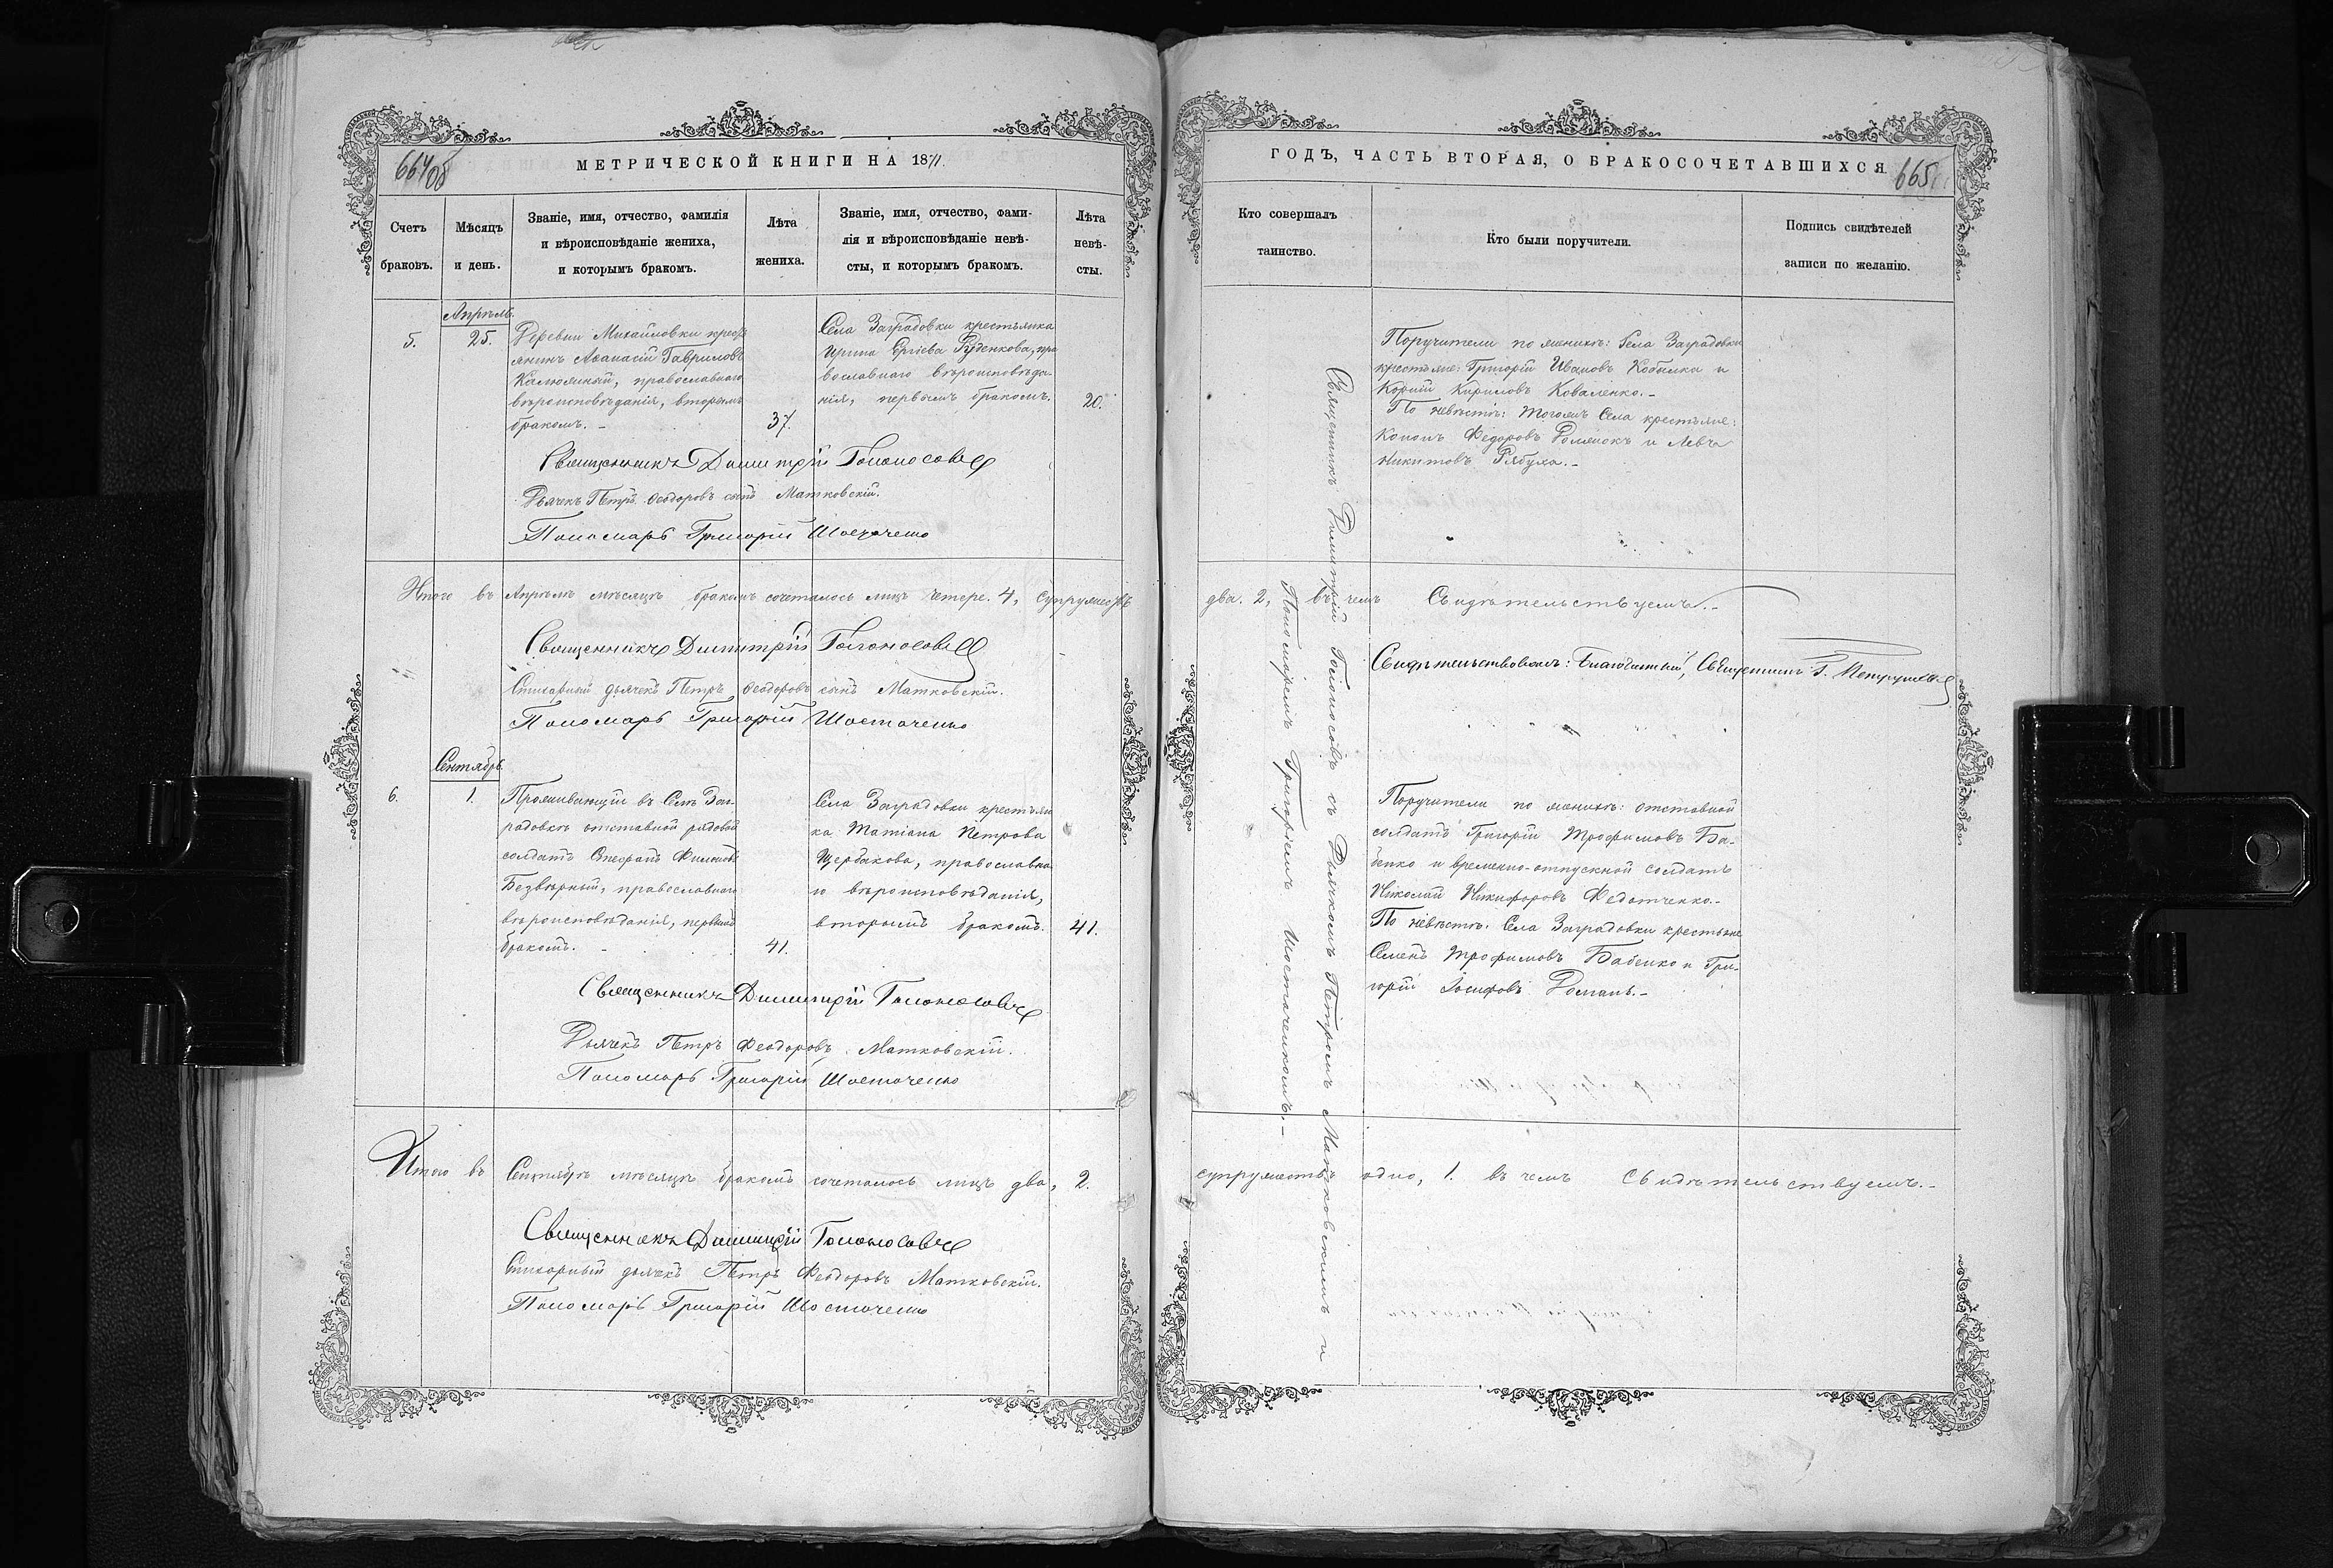 МЕТРИЧЕСКОЙ КНИГИ НА 1871.
Счетъ браковъ.
Мѣсяцъ и день.
Званіе, имя, отчество, фамилія
и вѣроисповѣданіе жениха,
и которымъ бракомъ.
Лѣта
жениха.
Званіе, имя, отчество, фами-
лія и вѣроисповѣданіе невѣ-
сты, и которымъ бракомъ.
Лѣта
невѣ-
сты.
5.
Апрѣль.
25.
Деревни Михайловки кресть
янинъ Аѳанасій Гавриловъ
православнаго
вѣроисповѣданія, вторымъ
бракомъ. -
37.
Села Заградовки крестьянка
Ирина Руденкова, пра
вославнаго вѣроисповѣда-
нія, первымъ бракомъ.
20.
Священникъ Димитрій Голоносовъ
Дьячекъ Петръ Ѳеодоровъ сынъ Матковскій.
Пономарь Григорій Шостаченко
Итого въ Апрѣлѣ мѣсяцѣ бракомъ сочеталось лицъ четыре. 4, супружествъ
Священникъ Димитрій Голоносовъ
Стихарный дьячекъ Петръ Ѳеодоровъ сынъ Матковскій.
Пономарь Григорій Шостаченко
6.
Сентябрь.
1.
Проживающій въ Селѣ Заг-
радовкѣ отставной рядовой
солдатъ
Безвѣрный, православнаго
вѣроисповѣданія, первымъ
бракомъ. -
41.
Села Заградовки крестьян
ка Татіана Петрова
Щербакова, православна
го вѣроисповѣданія,
вторымъ бракомъ.
41.
Священникъ Димитрій Голоносовъ
Дьячекъ Петръ Феодоровъ Матковскій.
Пономарь Григорій Шостаченко
Итого въ Сентябрѣ мѣсяцѣ бракомъ сочеталось лицъ два, 2.
Священникъ Димитрій Голоносовъ
Стихарный дьячекъ Петръ Феодоровъ Матковскій.
Пономарь Григорій Шостаченко
ГОДЪ, ЧАСТЬ ВТОРАЯ, О БРАКОСОЧЕТАВШИХСЯ.
665
Кто совершалъ
таинство.
Кто были поручители.
Подпись свидѣтелей
записи по желанію.
Священникъ Димитрій Голоносовъ съ Дьячкомъ Петромъ Матковскимъ и
Пономаремъ Григоріемъ Шостаченкомъ.-
Поручители по женихѣ: Села Заградовки
крестьяне: Григорій Ивановъ Кобалка и
Корній Кириловъ Коваленко.-
По невѣстѣ: тогожъ Села крестьяне:
Кононъ Федоровъ и Левко
Никитовъ Рябуха.-
два. 2, въ чемъ Свидѣтельствуемъ.-
Свидѣтельствовалъ: Благочинный, Священникъ
Поручители по женихѣ: отставной
солдатъ Григорій Трофимовъ Ба-
бенко и временно-отпускной солдатъ
Николай Никифоровъ Федотченко.-
По невѣстѣ: Села Заградовки крестьяне
Семенъ Трофимовъ Бабенко и Гри-
горій Іосифовъ Романъ.-
супружество одно, 1. въ чемъ Свидѣтельствуемъ.-